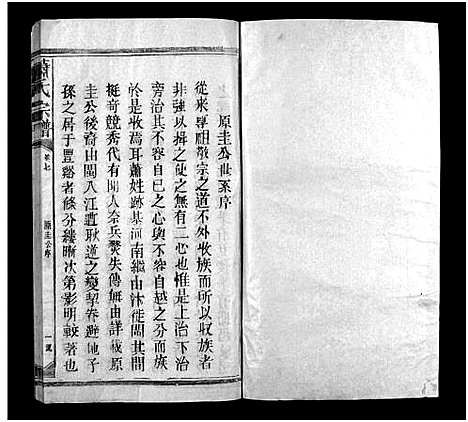 原圭公世系序
從來尊祖敬宗之道不外收族而所以収族者
非強以揖之使之無有二心也惟是上治下治
旁治其不容自已之心與不容自越之分而族
於是收焉耳蕭姓跡基河南繼由汴徙閩其間
挺奇競秀代有聞人奈兵燹失傳無由詳載原
圭公後裔由閩入江遭耿道之變挈眷避地子
孫之居于豐谿者條分縷晰次第影明較著也
蕭氏宗譜
卷七
源圭公序
一